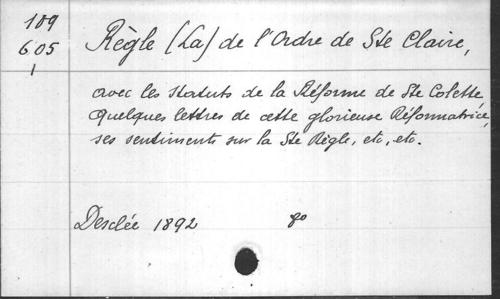 109
605
1
Règle (La) de l'Ordre de Ste Claire,
avec les statuts de la Réforme de Ste Colette,
quelques lettres de cette glorieuse Réformatrice,
ses sentiments sur la Ste Règle, etc, etc.
Desclée 1892 8o